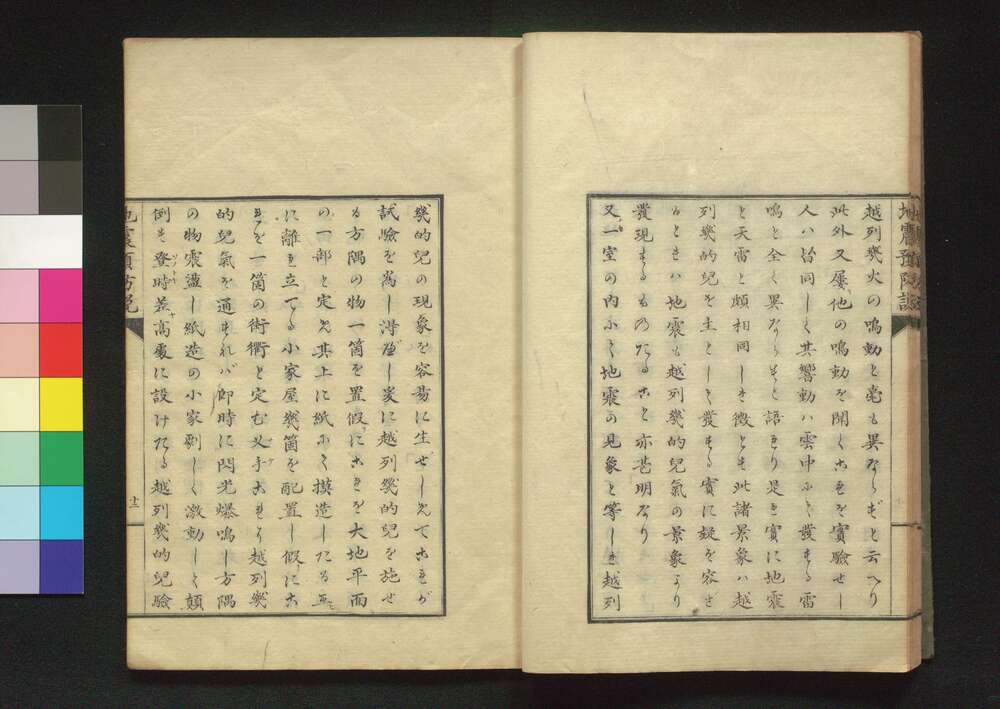 地震預防説
越列幾火の鳴動と毫も異ならずと云へり
此外又屢他の鳴動を聞くこれを實驗せし
人ハ皆同しく其響動ハ雲中にて發する雷
鳴と全く異ならすと語れり是れ實に地震
と天雷と頗相同しき徴とす此諸景象ハ越
列幾的兒を主として發する實に疑を容せ
るときハ地震も越列幾的兒氣の景象より
發現するものたること亦甚明なり
又一室の内にて地震の見象と等しき越列
幾的兒の現象を容昜に生せしめてこれが
試驗を爲し得べし爰に越列幾的兒を施せ
る方隅の物一箇を置假にこれを大地平面
の一部と定め其上に紙にて摸造したる互
に離れ立てる小家屋幾箇を配置し假にこ
れを一箇の街衢と定む又手これより越列幾
的兒氣を通すれバ即時に閃光爆鳴し方隅
の物震盪し紙造の小家劇しく激動して顛
倒す登時茲高處に設けたる越列幾的兒驗
地震預防説
十三